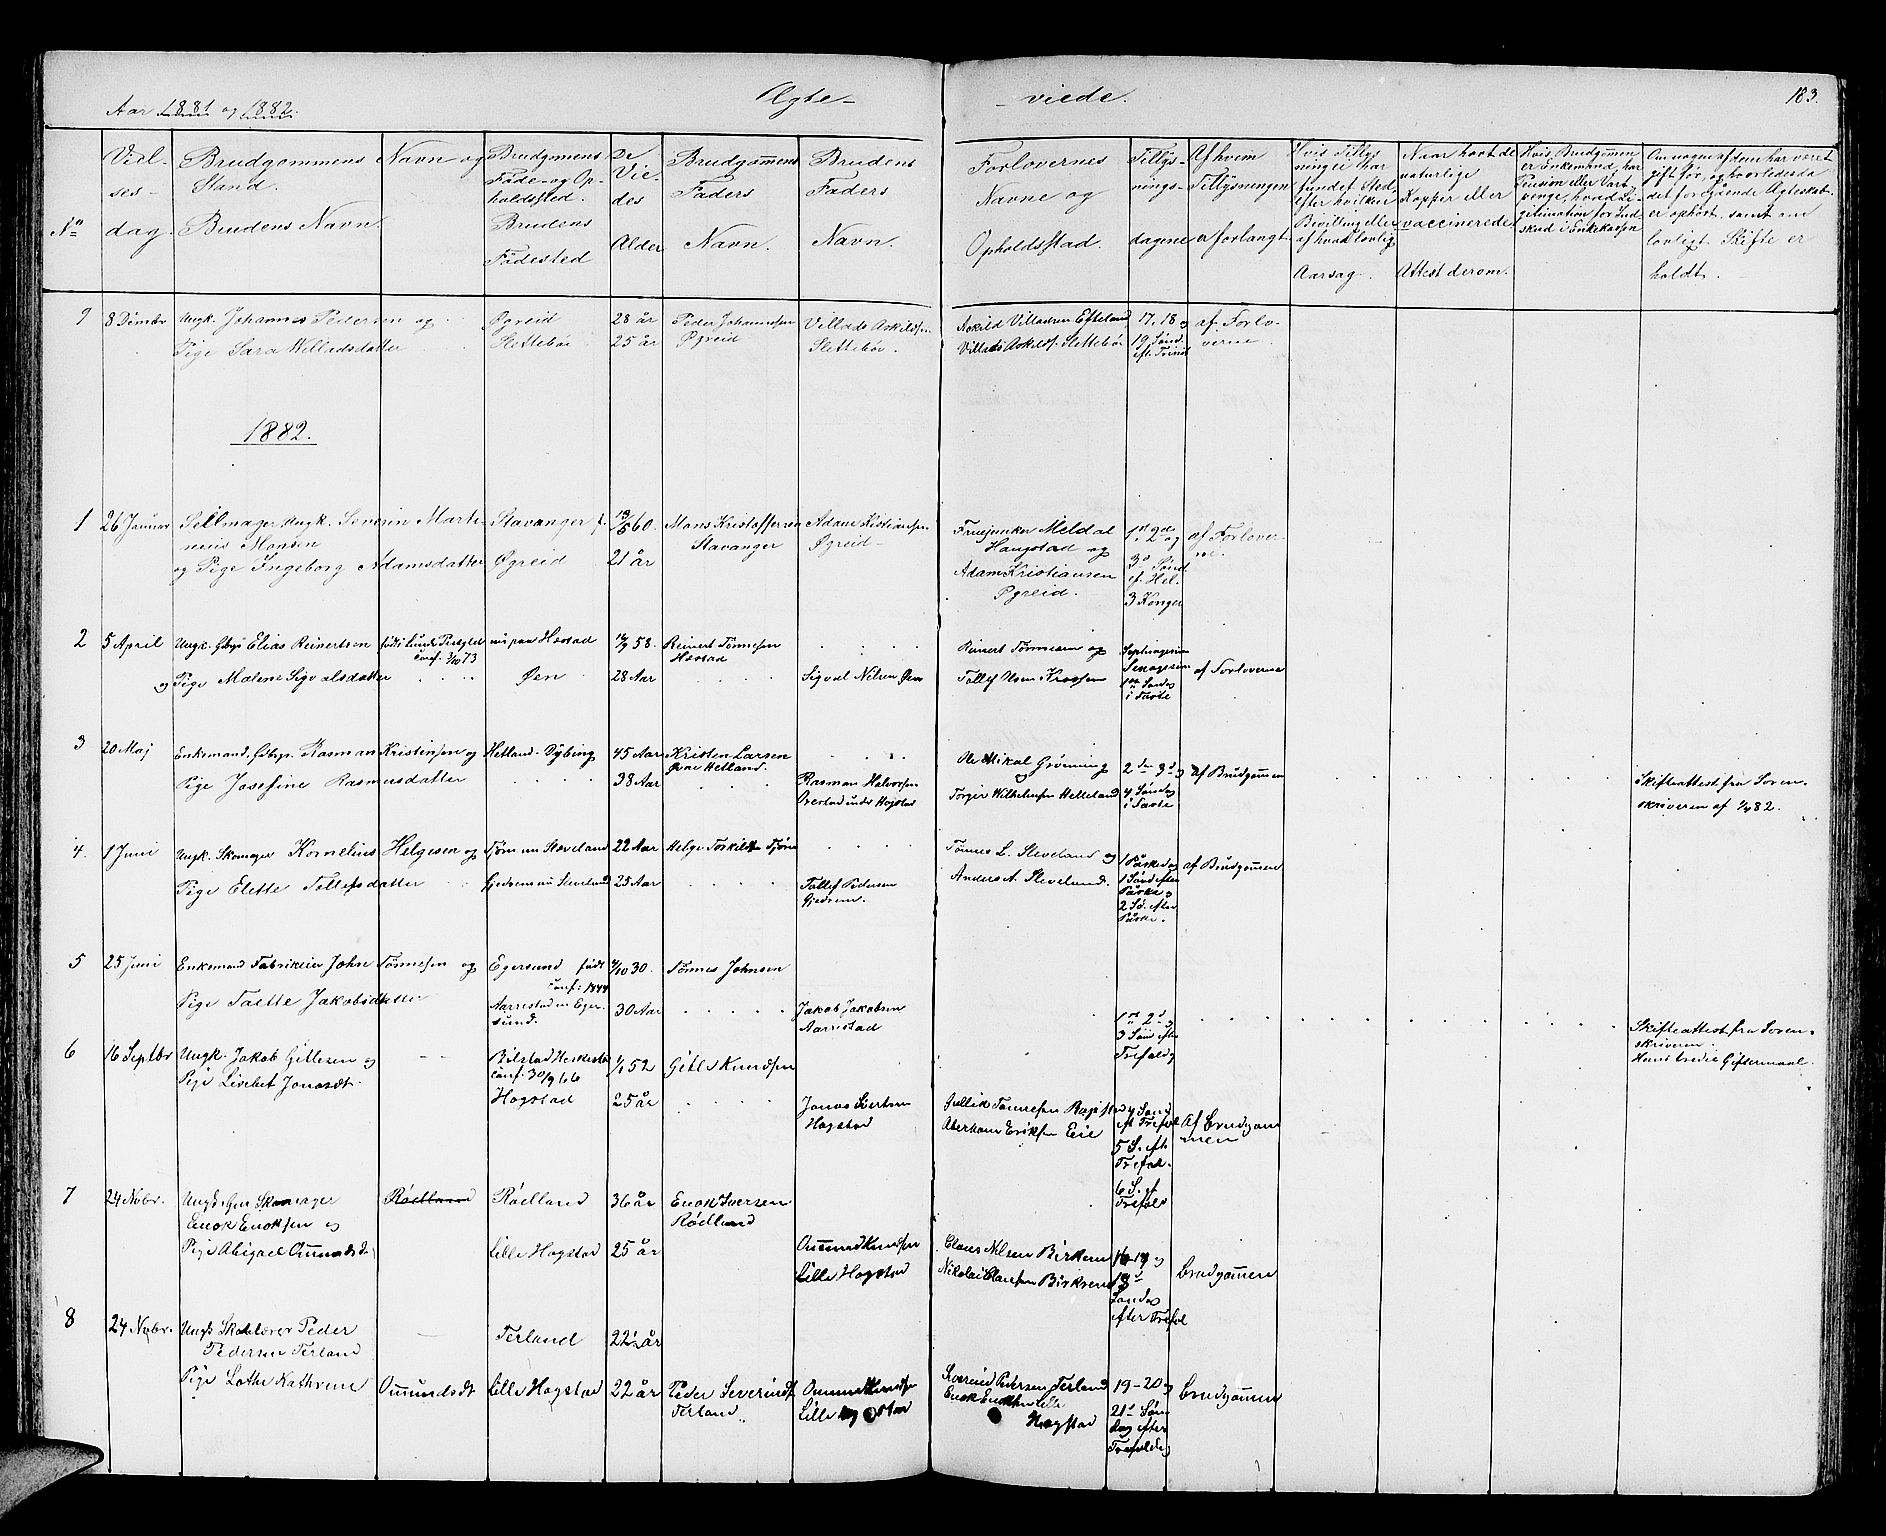 Aar 1881 og 1882.
Ægte-
viede.
183.
No
Viel-
ses-
dag.
Brudgommens Navn og
Stand.
Brudens Navn.
Brudgomens
Føde- og Op-
holdssted.
Brudens
Fødested
De
Vie-
des
Alder
Brudgomens
Faders
Navn.
Brudens
Faders
Navn.
Forlovernes
Navne og
Opholdsstad.
Tillys-
nings-
dagene
Af hvem
Tillysningen
er forlangt.
Hvis Tillys
ning ei har
fundet Sted,
efter hvilken
Bevilling eller
af hvad lovlig
Aarsag.
Naar havt de
naturlige
Kopper eller
vaccinerede
Attest derom.
Hvis Brudgomen
er Enkemand, har
Pension eller Vart-
penge, hvad Le-
gitimation for Ind-
skud i Enkekassen
Om nogen af dem har været
gift før, og hvorledes da
det foregående Ægteskab
er ophørt, samt om
lovligt Skifte er
holdt.
8 Dembr
Ungk. Johannes Pedersen og
Pige Sara Willadsdatter
Øgreid
Slettebø
28 år
25 år
Peder Johannesen
Øgreid
Villads Askildsen
Slettebø.
Askild Villadsen Efteland
Villads Askilds. Slettebø
17, 18 og
19 Sønd.
eft. Trinit
af Forlo-
verne.
1882.
1
26 Januar
Ungk. Severin Marti-
nius Monsen
og Pige Ingeborg Adamsdatter
Stavanger f.
Øgreid
60.
21 år
Mons Kristoffersen
Stavanger
Adam Kristiansen
Øgreid
Meldal
Haugstad og
Adam Kristiansen
Øgreid.
1ste 2den og
3die Sønd
ef. Hel.
3 Konger
af Forlover-
ne.
2
5 April
Ungk. Gbrgs Elias Reinertsen
Conf. 3/10 73
paa Hæstad
og Pige Malene Sigvalsdatter
Øen
58.
28 Aar
Reinert Tønnesen
Hæstad
Sigval Nilsen Øen
Reinert Tønnesen og
Tollef Olsen Krossen
Septuagesima
Sexagesima
1ste Søndag
i Faste
af Forloverne
3
20 Maj
Enkemand, Gdbgr. Rasman Kristensen og
Pige Josefine Rasmusdatter
Hetland - Dybing
45 Aar
38 Aar
Kristen Larsen
Hetland.
Rasman Halvorsen
under Hogstad
Ole Mikal Grønning
Torger Wilhelmsen Helleland
2den 3die og
4 Søndag
i Faste
af Brudgomen
Skifteattest fra Soren-
skriveren af 82.
4.
1 Juni
Ungk. Skomager Kornelius Helgesen og
Pige Elette Tollefsdatter
Tjørn Sleveland
Gjedrem Sleveland
22 Aar
25 Aar
Helge Torkilds. Tjørn
Tollef Pedersen
Gjedrem.
Tønnes L. Sleveland og
Anders A. Sleveland.
1 Påskedag
1 Sønd efter
Påske og
2 Sø. efter
Påske.
af Brudgomen
5
25 Juni
Enkemand Fabrikeier John Tønnesen og
Pige Taette Jakobsdatter
Egersund født
Conf: 1844
Aarrestad Eger-
sund.
4/10 30.
30 Aar
Tønnes Johnsen
Jakob Jakobsen
Aarrestad
1ste 2den og
3 Søn efter
Trefoldg
Skifteattest fra Soren-
skriveren.
Hans tredie Giftermaal.
6
16 Septbr
Ungk. Jakob Gitlesen og
Pige Lisebet Jonasdt.
Bilstad Heskestad
Conf. 30/9 66
Hogstad
1/1 52
25 år
Gitle Knudsen
Jonas Sivertsen
Hogstad
Gullik Tønnesen
Aberham Eriksen Eie
4 Sønd
eft Trefold
5 S. eft.
Trefol.
6 S. ef
Trefold
af Brudgom
men
7
24 Nobr.
Ungk. Skomager
Enok Enoksen og
Pige Abigael Omundsd.
Rødland
Rødland
Lille Hogstad
36 år
25 år
Enok Iversen
Rødland
Ommund Knudsen
Lille Hogstad
Claus Nilsen Birkren
Nikolai Clausen Birkren
18de
Søndag
efter Trefol
Brudgommen
8
24 Nobr.
Ungk. Skolelærer Peder
Pedersen Terland
Pige Lothe Kathrine Omundsdt
Terland
Lille Hogstad
22½ år
22 år
Peder Severinds.
Terland.
Omund Knudsen
Lille Hogstad
Severin Pedersen Terland
Enok Enoksen Lille
Hogstad
19 - 20 og
21de Søn
dag efter
Trefoldig
Brudgommen